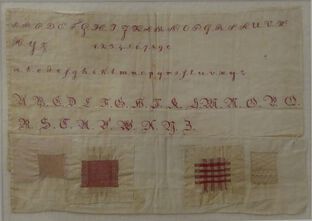 A B C D E F G H I J K L M N O P Q R S T U V W
X Y Z 1 2 3 4 5 6 7 8 9 0
a b c d e f g h i k l m n o p q r s t u v x y z
A. B. C. D. E. F. G. H. I. K. L. M. N. O. P. Q.
R. S. T. U. V. W. X. Y. Z.